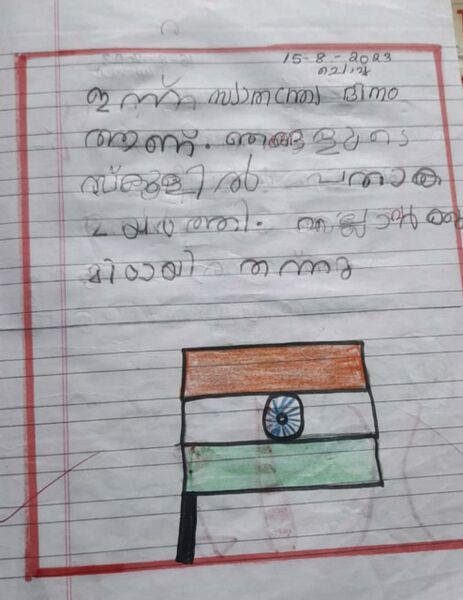 15-8-2023
ചൊവ്വ
ഇന്ന് സ്വാതന്ത്ര്യ ദിനം
ആണ്. ഞങ്ങളുടെ
സ്കൂളിൽ പതാക
ഉയർത്തി. എല്ലാവർക്കു
മിഠായി തന്നു